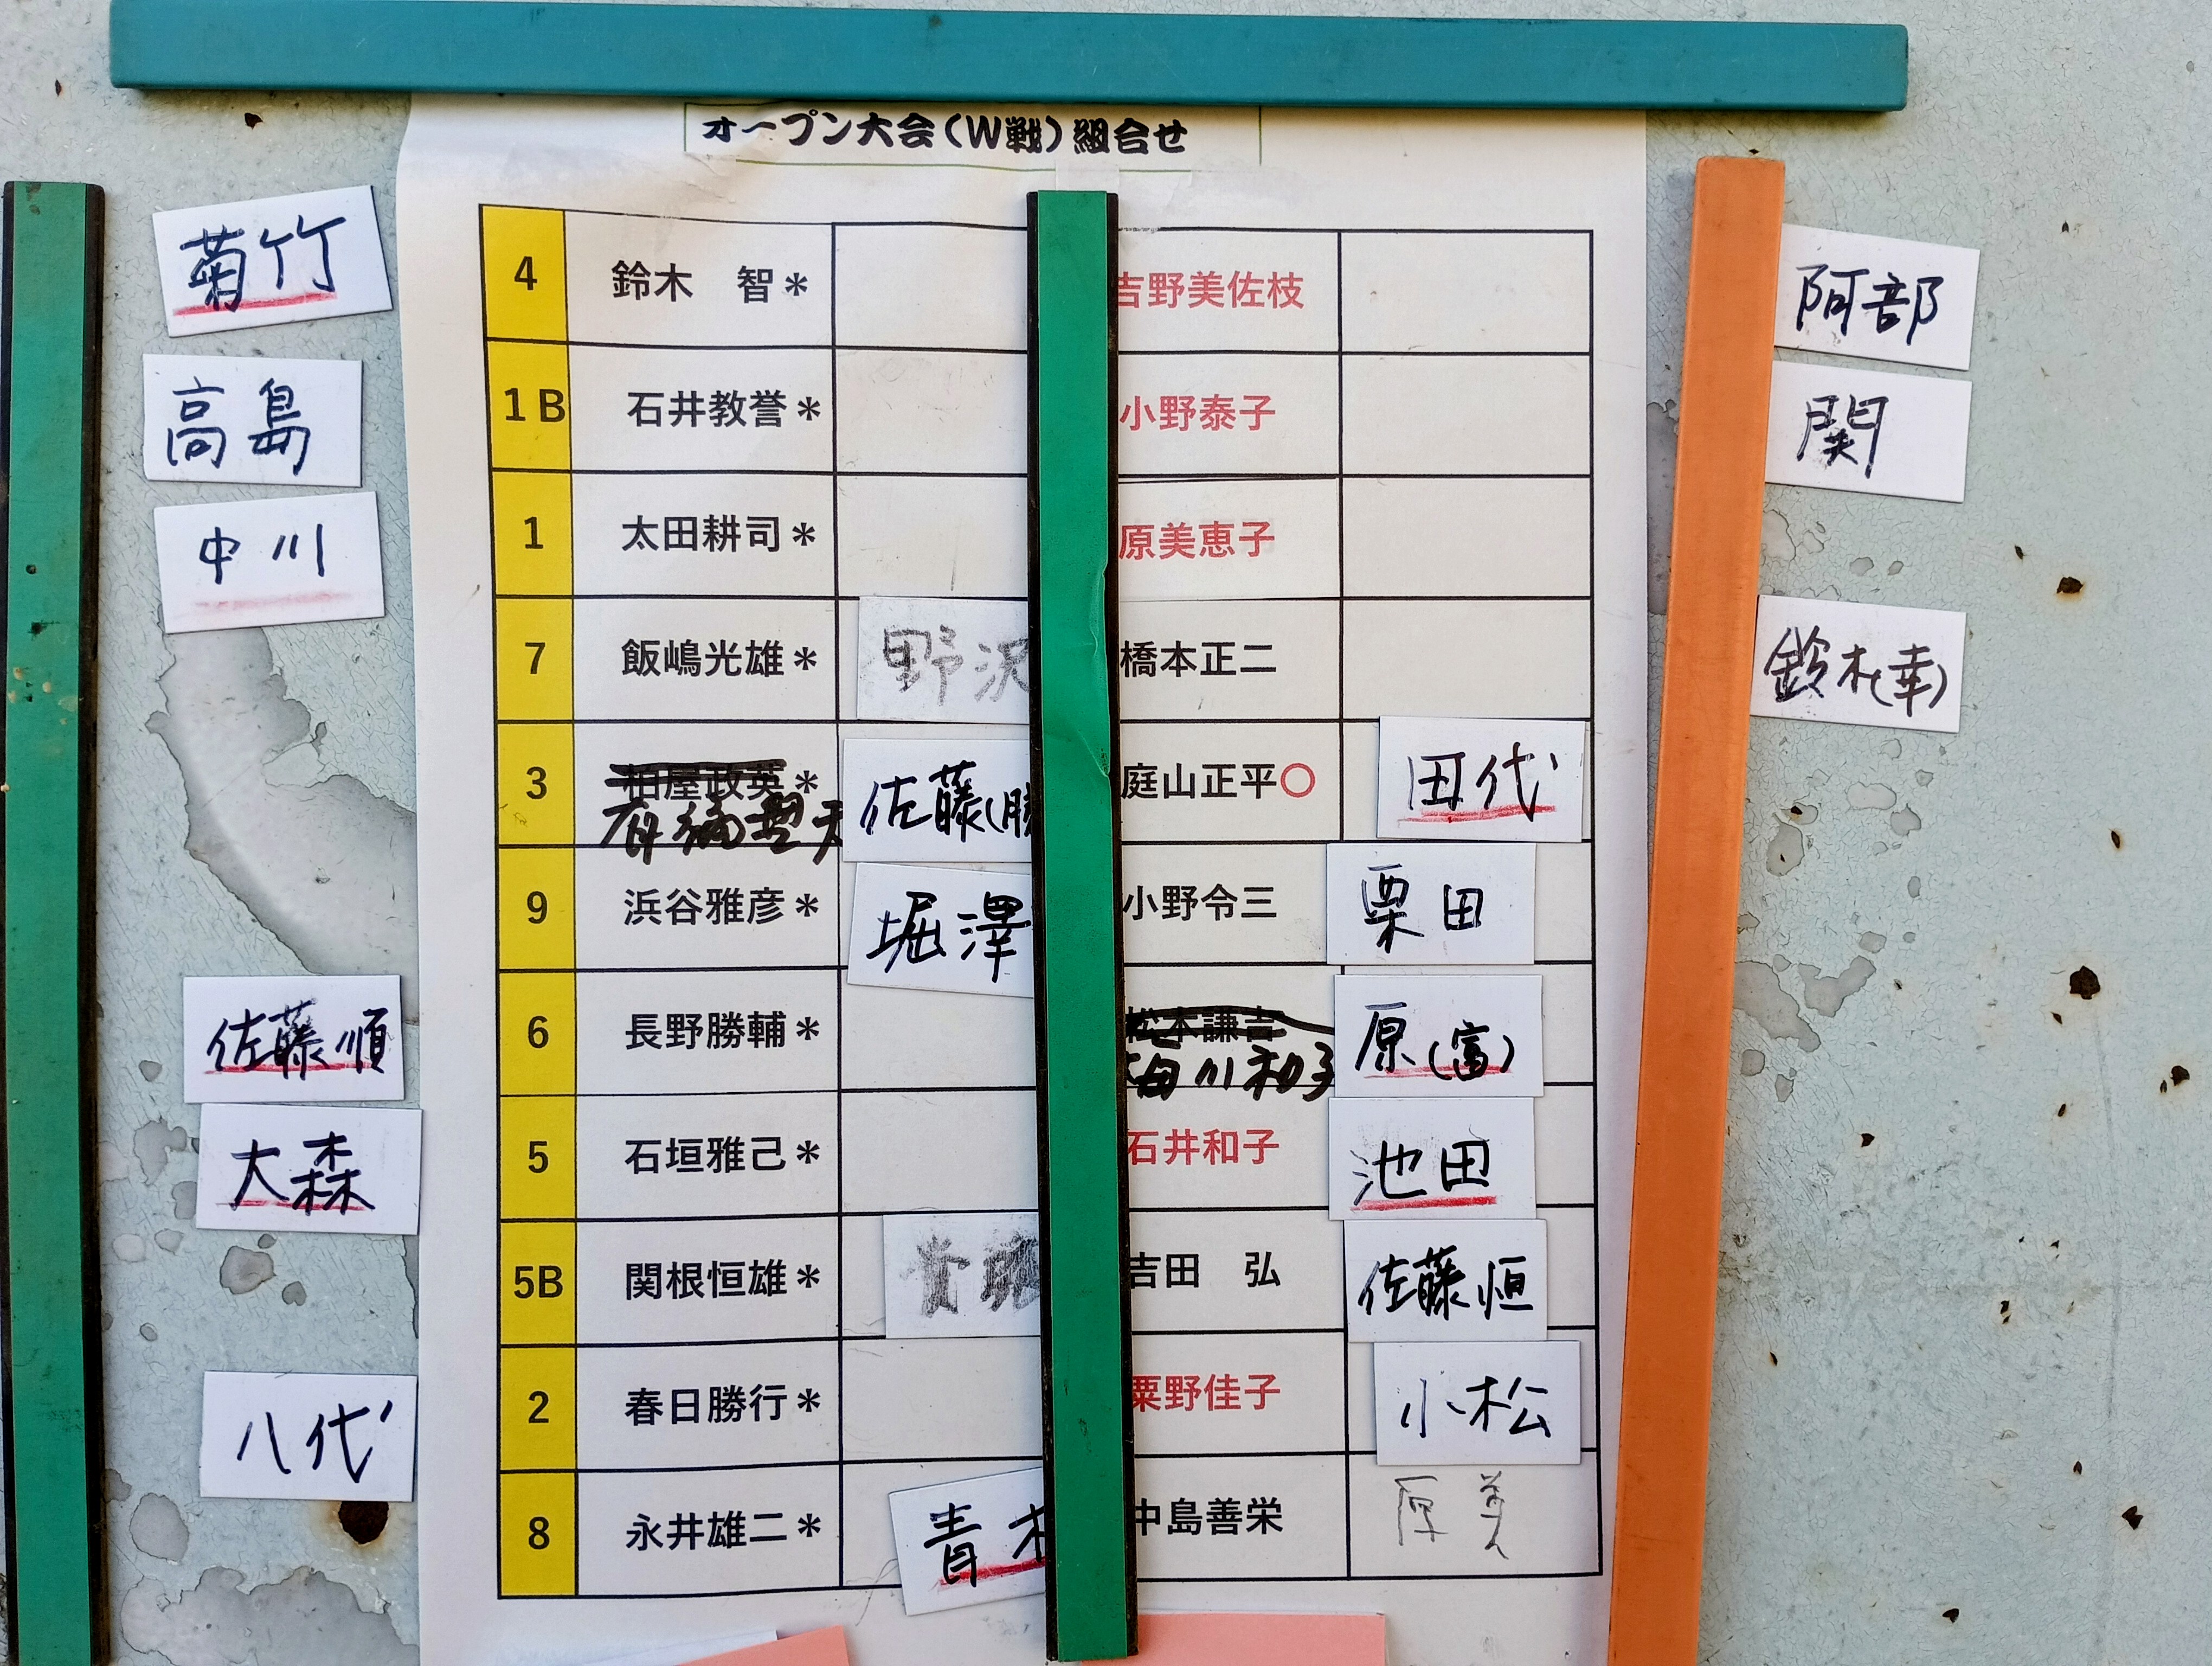 オープン大会(W戦)組合せ
菊竹 4 鈴木 智* 吉野美佐枝 阿部
高島 1B 石井教誉* 小野泰子 関
中川 1 太田耕司* 原美恵子
7 飯嶋光雄* 野沢 橋本正二 鈴木(幸)
3 柏屋政英* 佐藤(勝 庭山正平○ 田代
9 浜谷雅彦* 堀澤 小野令三 栗田
佐藤順 6 長野勝輔* 松本謙吉 原(富)
川和子
大森 5 石垣雅己* 石井和子 池田
5B 関根恒雄* 吉田 弘 佐藤恒
八代 2 春日勝行* 粟野佳子 小松
8 永井雄二* 青 中島善栄 原 美